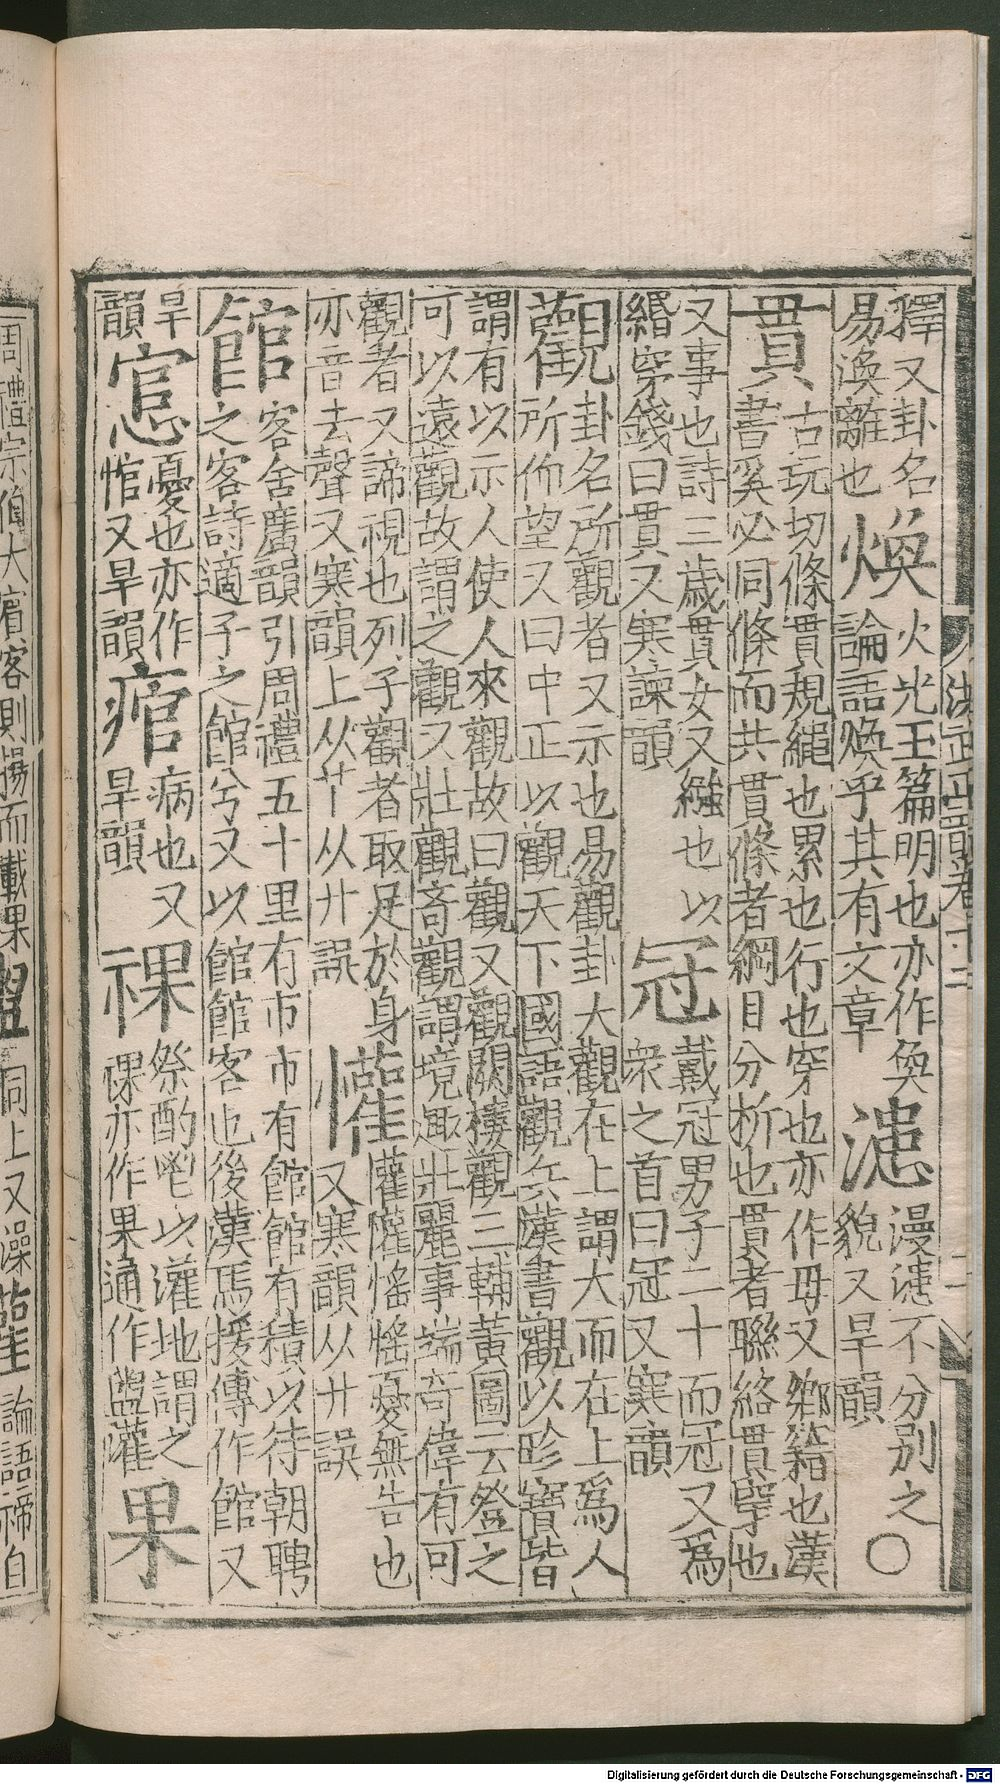 釋又卦名
易渙離也
煥
火光玉篇明也亦作奐
論語煥乎其有文章
漶
漫漶不分別之〇
貌又旱韻
貫
古玩切條貫規繩也累也行也穿也亦作毌又鄉籍也漢
書奚必同條而共貫條者綱目分析也貫者聯絡貫穿也
又事也詩三歲貫女又繼也以
緡穿錢曰貫又寒諫韻
冠
戴冠男子二十而冠又爲
衆之首曰冠又寒韻
觀
卦名所觀者又示也易觀卦大觀在上謂大而在上爲人
所仰望又曰中正以觀天下國語觀兵漢書觀以珍寶皆
謂有以示人使人來觀故曰觀又觀闕樓觀三輔黃圖云登之
可以遠觀故謂之觀又壯觀奇觀謂境趣壯麗事端奇偉有可
觀者又諦視也列子觀者取足於身
亦音去聲又寒韻上从艹从廾誤
懽
懽懽愮愮憂無告也
又寒韻从廾誤
館
客舍廣韻引周禮五十里有市市有館館有積以待朝聘
之客詩適子之館兮又以館館客也後漢馬援傳作館又
旱
韻
悹
憂也亦作
悺又旱韻
痯
病也又
旱韻
祼
祭酌鬯以灌地謂之
祼亦作果通作盥灌
果
周禮宗伯大賓客則攝而載果
盥
同上又澡
灌
論語禘自
洪武正韻卷十二
Digitalisierung gefördert durch die Deutsche Forschungsgemeinschaft - DFG